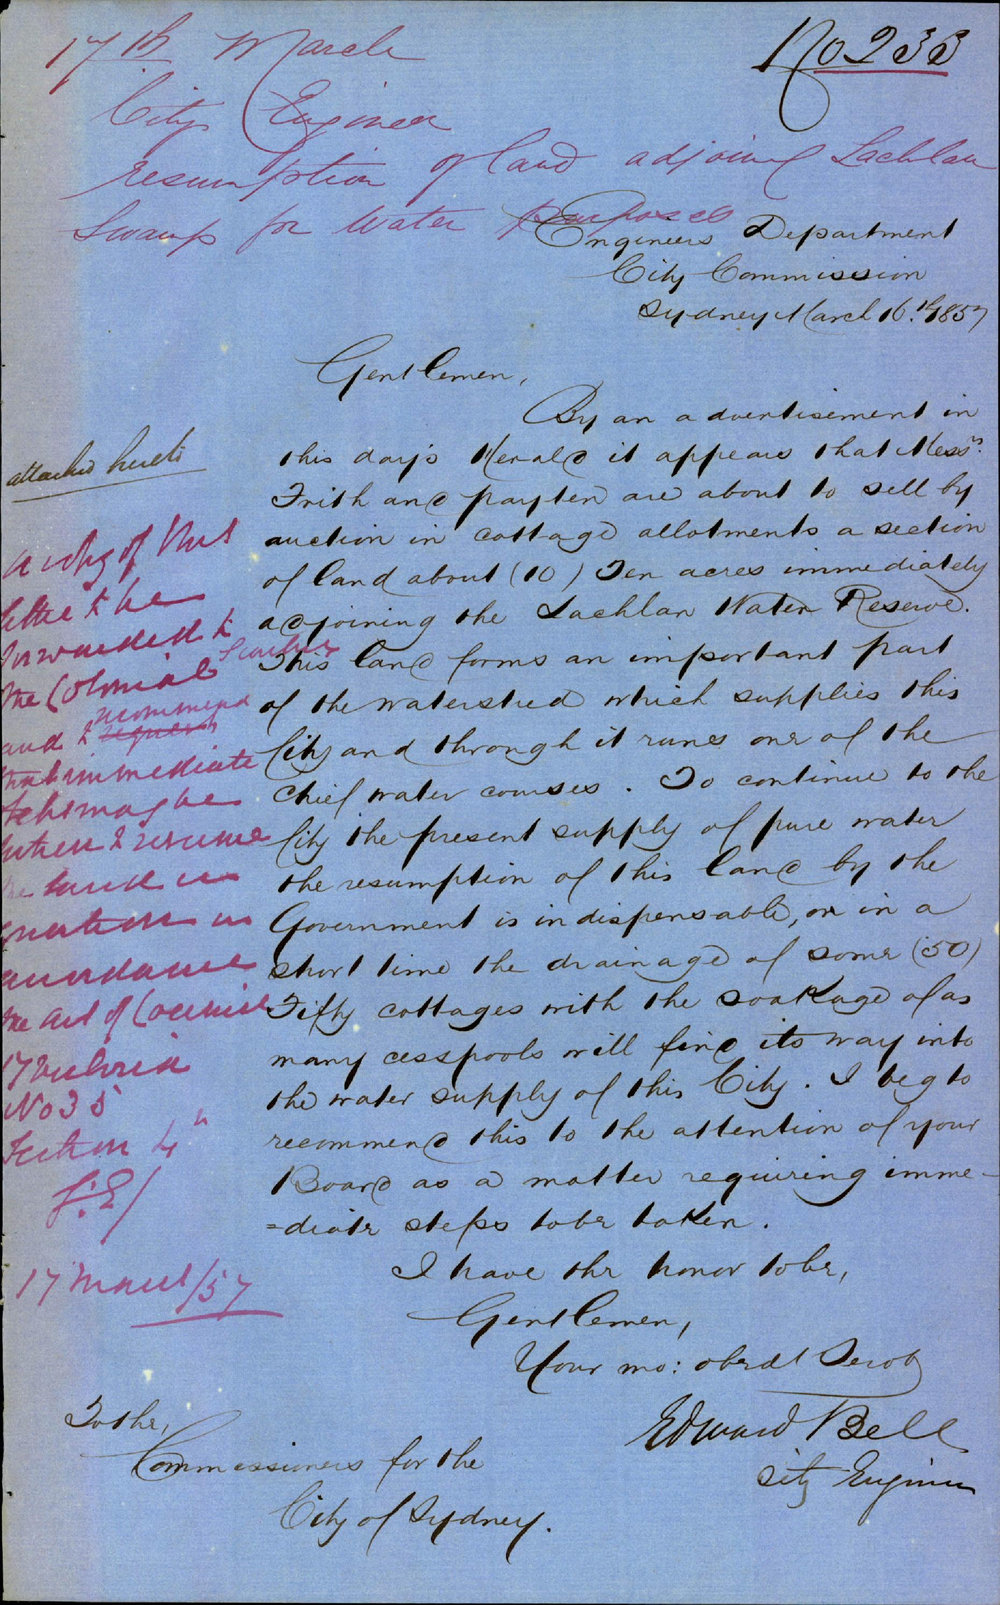 No 233
17th March
City Engineer
resumption of land adjoining Lachlan
Swamp for Water purposes
Engineers Department
City Commission
Sydney March 16th. 1857
Gentlemen,
By an advertisement in
this day's Herald it appears that Messrs.
Frith and Payten are about to sell by
auction in cottage allotments a section
of land about (10) Ten acres immediately
adjoining the Lachlan Water Reserve.
This land forms an important part
of the watershed which supplies this
City and through it runs one of the
chief water courses. To continue to the
City the present supply of pure water
the resumption of this land by the
Government is indispensable, or in a
short time the drainage of some (50)
Fifty cottages with the soakage of as
many cesspools will find its way into
the water supply of this City. I beg to
recommend this to the attention of your
Board as a matter requiring imme-
=diate steps to be taken.
I have the honor to be,
Gentlemen,
Your mo: obedt Servt
Edward Bell
City Engineer
To the,
Commissioners for the
City of Sydney.
attached herets
A copy of this
letter to be
forwarded to
the Colonial Secretary
and to request recommend
that immediate
steps may be
taken to resume
the land in
question in
accordance
the Act of Council
17 Victoria
No 35
Section 4"
G.E/
17 March/57